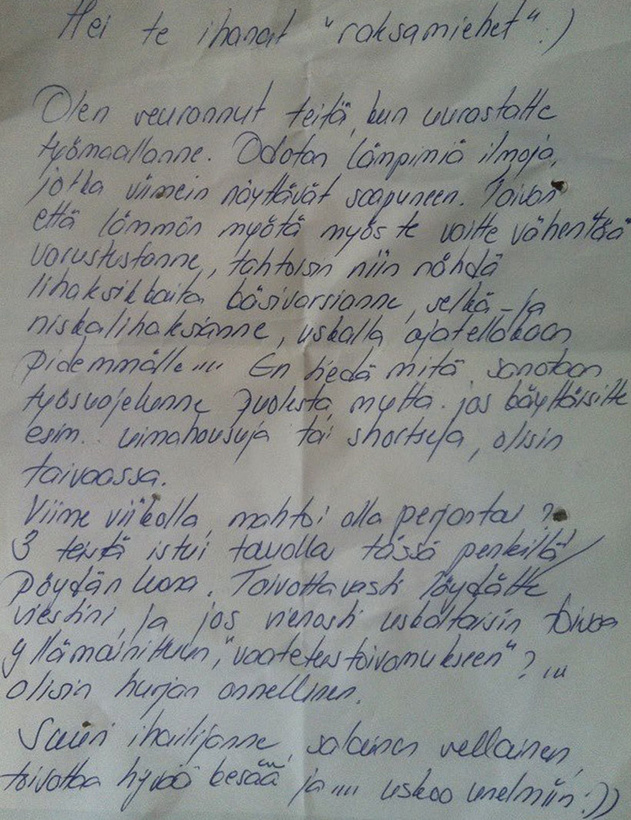 Hei te ihanat "raksamiehet" :)
Olen seurannut teitä, kun uurastatte
työmaallanne. Odotan lämpimiä ilmoja,
jotka viimein näyttävät saapuneen. Toivon
että lämmön myötä myös te voitte vähentää
varustustanne, tahtoisin niin nähdä
lihaksikkaita käsivarsianne, selkä- ja
niskalihaksianne, uskalla ajatellakaan
pidemmälle.... En tiedä mitä sanotaan
työsuojelunne puolesta, mutta jos käyttäisitte
esim. uimahousuja tai shortseja, olisin
taivaassa.
Viime viikolla, mahtoi olla perjantai ?
3 teistä istui tauolla tässä penkillä/
pöydän luona. Toivottavasti löydätte
viestini ja jos vienosti uskaltaisin toivoa
yllämainittuun, "vaatetustoivomukseen" ?...
olisin hurjan onnellinen.
Suuri ihailijanne, salainen sellainen,
toivottaa hyvää kesää, ja .... uskoo unelmiin :))